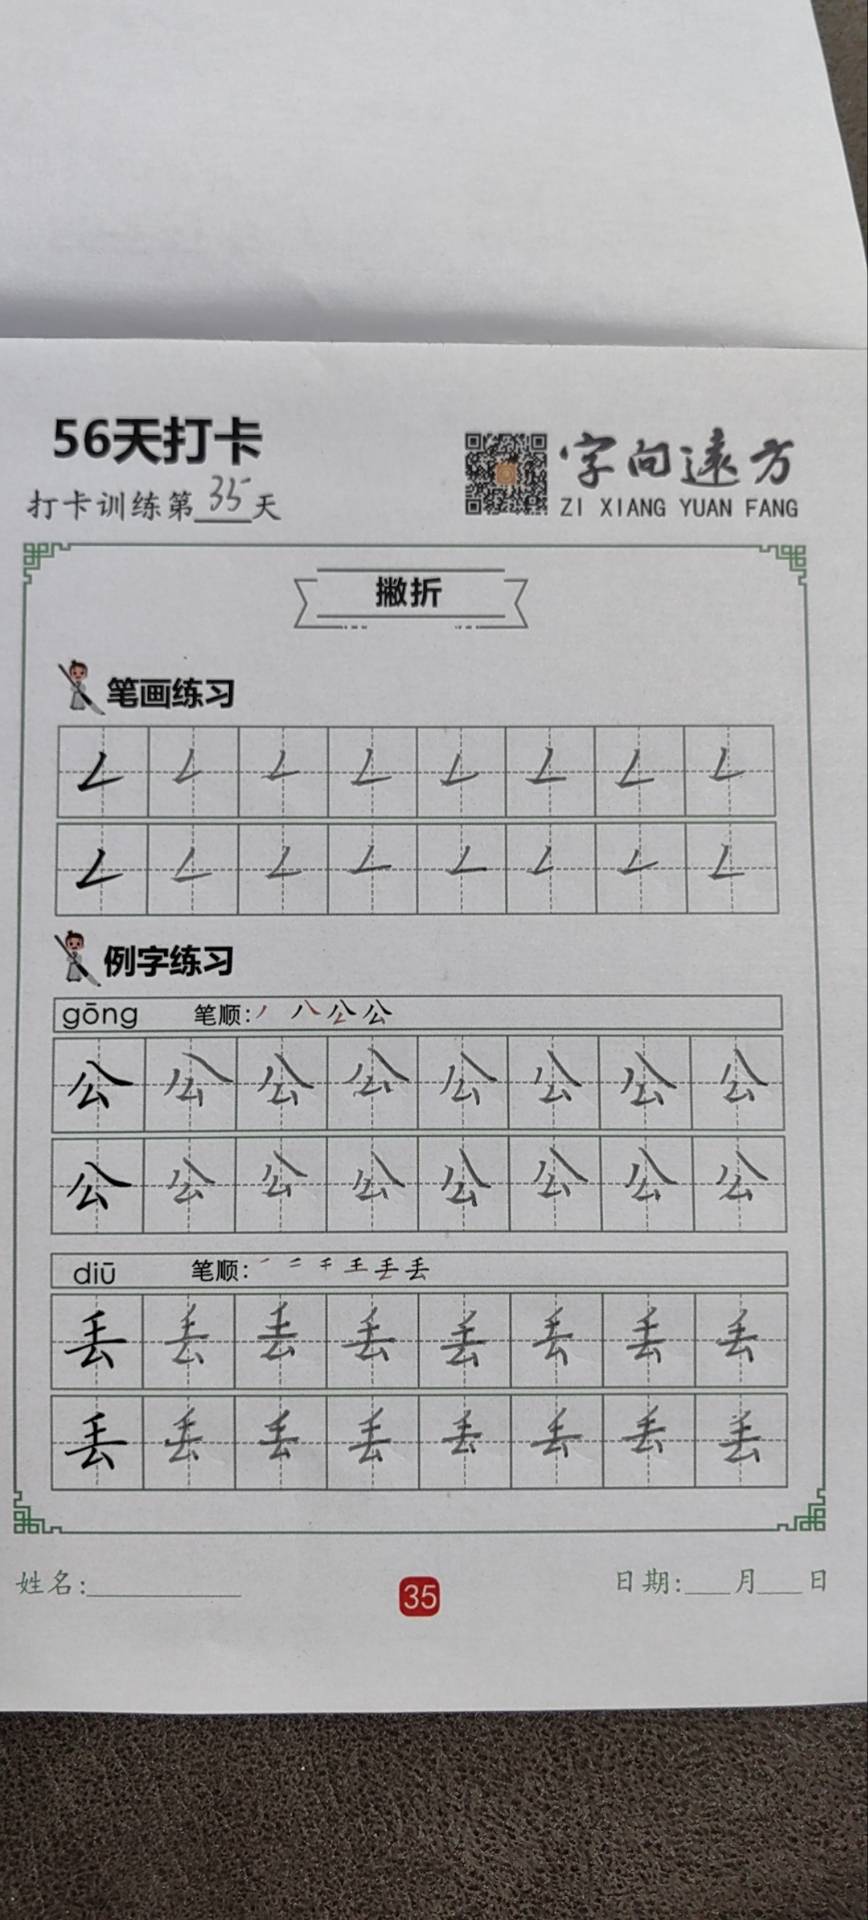 56天打卡
打卡训练第35天
字向遠方
ZI XIANG YUAN FANG
撇折
笔画练习
𠃋 𠃋 𠃋 𠃋 𠃋 𠃋 𠃋 𠃋
𠃋 𠃋 𠃋 𠃋 𠃋 𠃋 𠃋 𠃋
例字练习
gōng 笔顺：丿 八 公 公
公 公 公 公 公 公 公 公
公 公 公 公 公 公 公 公
diū 笔顺：一 二 千 王 丢 丢
丢 丢 丢 丢 丢 丢 丢 丢
丢 丢 丢 丢 丢 丢 丢 丢
姓名：
35
日期：月日